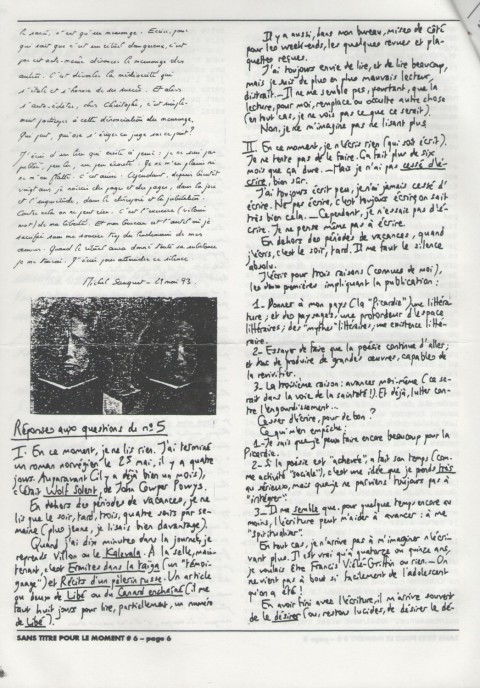 le sacré, c'est qu'un mensonge. Écrire, pour
qui sait que c'est un crédit dangereux, c'est
par cet acte-même dénoncer le mensonge des
autres. C'est dénoncer la médiocrité qui
s'étale et s'honore de ses succès. Et alors
s'auto-éditer, cher Christophe, c'est simple-
ment participer à cette dénonciation du mensonge.
Qui peut, qui ose s'ériger en juge sur ce point?
J'écris d'un lieu qui incite à
Michel Senquet - 29 mai 93.
Réponses aux questions du n° 5
I- En ce moment, je ne lis rien. J'ai terminé
un roman norvégien le 25 mai, il y a quatre
jours. Auparavant (il y a déjà bien un mois),
c'était Wolf Solent, de John Cowper Powys.
En dehors des périodes de vacances, je ne
lis que le soir, tard, trois, quatre soirs par se-
maine (plus jeune, je lisais bien davantage).
Quand j'ai dix minutes dans la journée, je
reprends Villon ou le Kalevala. A la selle, main-
tenant, c'est Ermites dans la taïga (un "témoi-
gnage") et Récits d'un pèlerin russe. Un article
ou deux de Libé ou du Canard enchaîné (il me
faut huit jours pour lire, partiellement, un numéro
de Libé).
Il y a aussi, dans mon bureau, mises de côté
pour les week-ends, les quelques revues et pla-
quettes reçues.
J'ai toujours envie de lire, et de lire beaucoup,
mais je suis de plus en plus mauvais lecteur,
distrait. Il ne me semble pas, pourtant, que la
lecture, pour moi, remplace ou occulte autre chose
(en tout cas, je ne vois pas ce que ce serait).
Non, je ne m'imagine pas ne lisant plus.
II- En ce moment, je n'écris rien (qui soit écrit).
Je ne tente pas de le faire. Ça fait plus de six
mois que ça dure. - Mais je n'ai pas cessé d'é-
crire, bien sûr.
J'ai toujours écrit peu, je n'ai jamais cessé d'
écrire. Ne pas écrire, c'est toujours écrire, on sait
très bien cela. - Cependant, je n'essaie pas d'é-
crire. Je ne pense même pas à écrire.
En dehors des périodes de vacances, quand
j'écris, c'est le soir, tard. Il me faut le silence
absolu.
J'écris pour trois raisons (connues de moi),
les deux premières impliquant la publication:
1- Donner à mon pays (la "Picardie") une litté-
ture; et des paysages, une profondeur d'espace
littéraires; des "mythes" littéraires; une existence litté-
raire.
2- Essayer de faire que la poésie continue d'aller;
et donc de produire de grandes œuvres, capables de
la revivifier.
3- La troisième raison: avancer moi-même (ce se-
rait dans la voie de la sainteté!). Et déjà, lutter con-
tre l'engourdissement...
Cesser d'écrire, pour de bon?
Ce qui m'en empêche:
1- Je sais que je peux faire encore beaucoup pour la
Picardie.
2- Si la poésie est "achevée", a fait son temps (com-
me activité "sociale"), c'est une idée que je prends très
au sérieux, mais que je ne parviens toujours pas à
"intégrer".
3- Il me semble que, pour quelque temps encore au
moins, l'écriture peut m'aider à avancer: à me
"spiritualiser".
En tout cas, je n'arrive pas à m'imaginer n'écri-
vant plus. Il est vrai qu'à quatorze ou quinze ans,
je voulais être Francis Vielé-Griffin ou rien. - On
ne vient pas à bout si facilement de l'adolescent
qu'on a été!
En avoir fini avec l'écriture, il m'arrive souvent
de le désirer (ou, restons lucides, de désirer le dé-
SANS TITRE POUR LE MOMENT # 6 – page 6